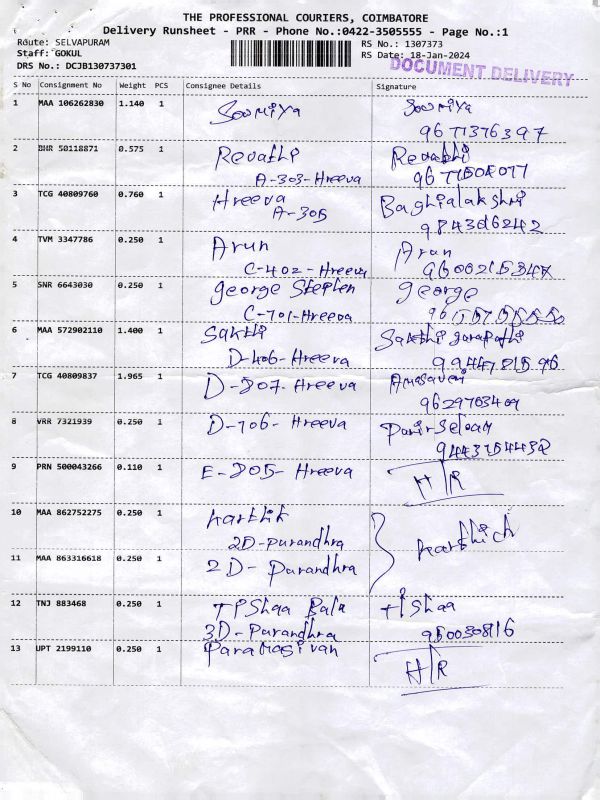 THE PROFESSIONAL COURIERS, COIMBATORE
Delivery Runsheet - PRR - Phone No.:0422-3505555 - Page No.:1
Route: SELVAPURAM RS No.: 1307373
Staff: GOKUL RS Date: 18-Jan-2024
DRS No.: DCJB130737301 DOCUMENT DELIVERY
S No Consignment No Weight PCS Consignee Details Signature
1 MAA 106262830 1.140 1 Sowmiya Sowmiya
9677376397
2 BHR 50118871 0.575 1 Revathi Revathi
A-303-Hreeva
3 TCG 40809760 0.760 1 Hreeva Baghialakshmi
A-305 9843016242
4 TVM 3347786 0.250 1 Arun Arun
C-402-Hreeva
5 SNR 6643030 0.250 1 George Stephen George
C-701-Hreeva
6 MAA 572902110 1.400 1 Sakthi Sakthi
D-406-Hreeva
7 TCG 40809837 1.965 1 D-807-Hreeva
8 VRR 7321939 0.250 1 D-706-Hreeva
9443754432
9 PRN 500043266 0.110 1 E-805-Hreeva H/R
10 MAA 862752275 0.250 1 Karthik Karthick
2D-Purandhra
11 MAA 863316618 0.250 1 2D- Purandhra
12 TNJ 883468 0.250 1 TiShaa Bala tiShaa
3D-Purandhra 950030816
13 UPT 2199110 0.250 1 Paramasivan H/R